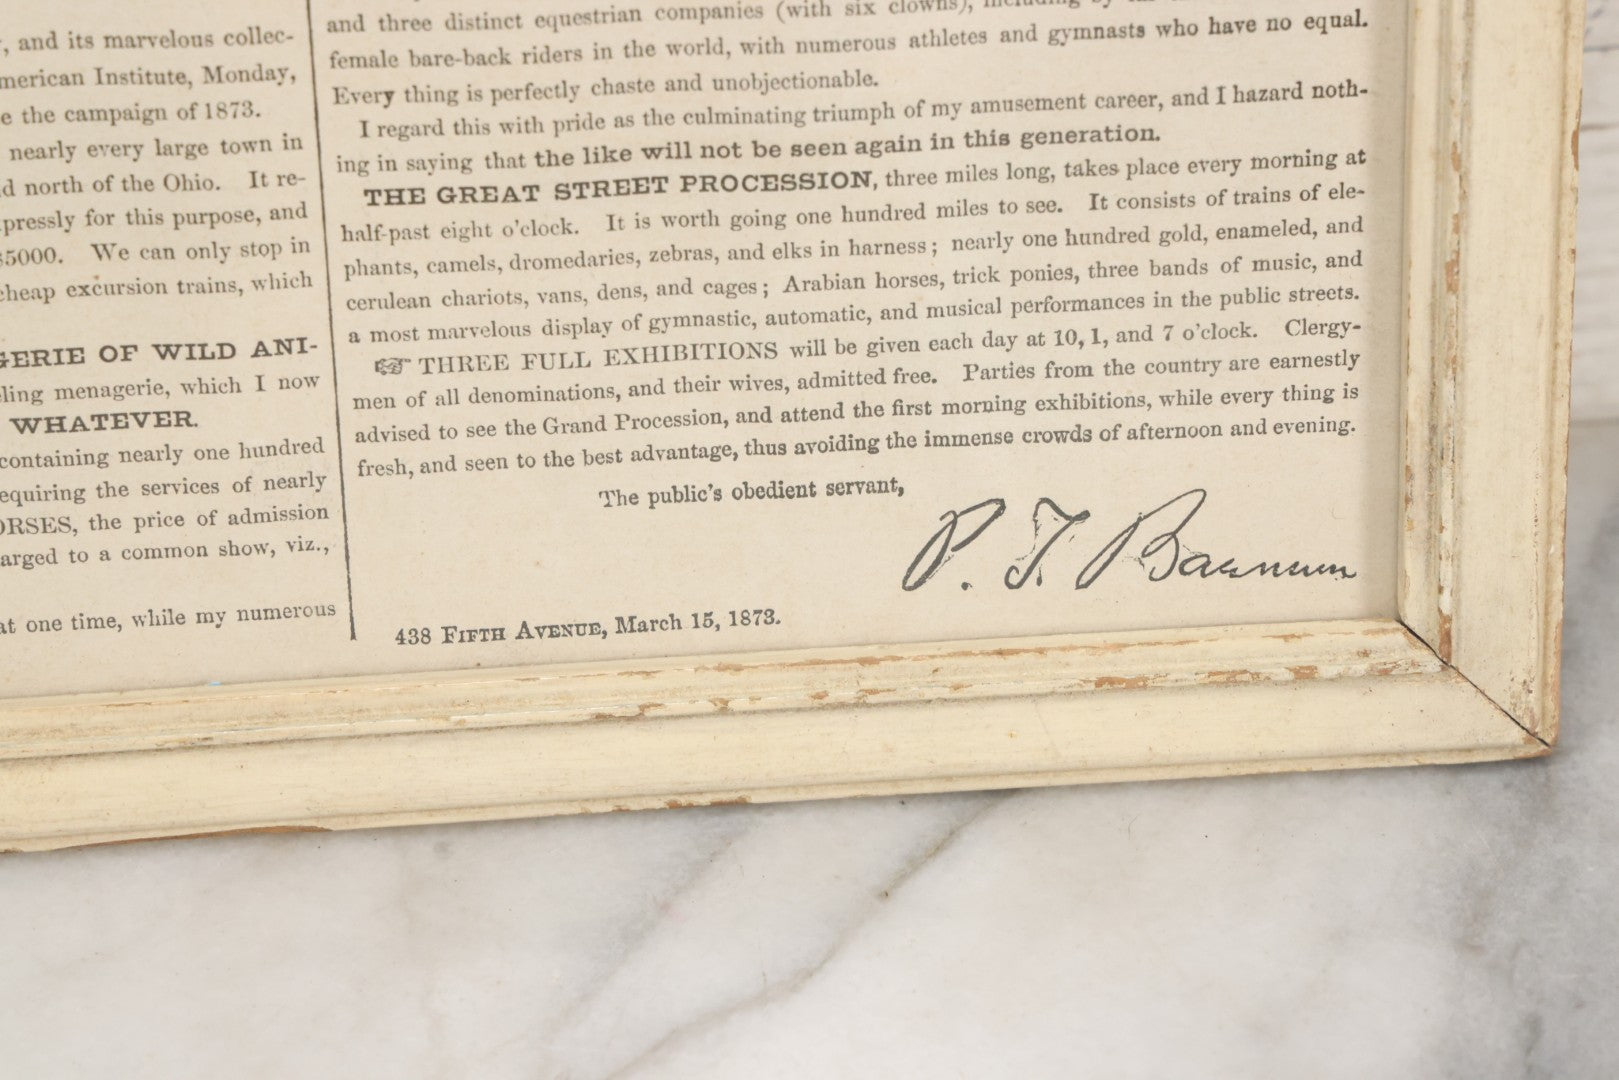 , and its marvelous collec-
merican Institute, Monday,
e the campaign of 1873.
nearly every large town in
d north of the Ohio. It re-
pressly for this purpose, and
$5000. We can only stop in
cheap excursion trains, which
GERIE OF WILD ANI-
ling menagerie, which I now
WHATEVER.
containing nearly one hundred
equiring the services of nearly
ORSES, the price of admission
arged to a common show, viz.,
at one time, while my numerous
and three distinct equestrian companies (with six clowns), including by far
female bare-back riders in the world, with numerous athletes and gymnasts who have no equal.
Every thing is perfectly chaste and unobjectionable.
I regard this with pride as the culminating triumph of my amusement career, and I hazard noth-
ing in saying that the like will not be seen again in this generation.
THE GREAT STREET PROCESSION, three miles long, takes place every morning at
half-past eight o'clock. It is worth going one hundred miles to see. It consists of trains of ele-
phants, camels, dromedaries, zebras, and elks in harness; nearly one hundred gold, enameled, and
cerulean chariots, vans, dens, and cages; Arabian horses, trick ponies, three bands of music, and
a most marvelous display of gymnastic, automatic, and musical performances in the public streets.
☞ THREE FULL EXHIBITIONS will be given each day at 10, 1, and 7 o'clock. Clergy-
men of all denominations, and their wives, admitted free. Parties from the country are earnestly
advised to see the Grand Procession, and attend the first morning exhibitions, while every thing is
fresh, and seen to the best advantage, thus avoiding the immense crowds of afternoon and evening.
The public's obedient servant,
P. T. Barnum
438 FIFTH AVENUE, March 15, 1873.